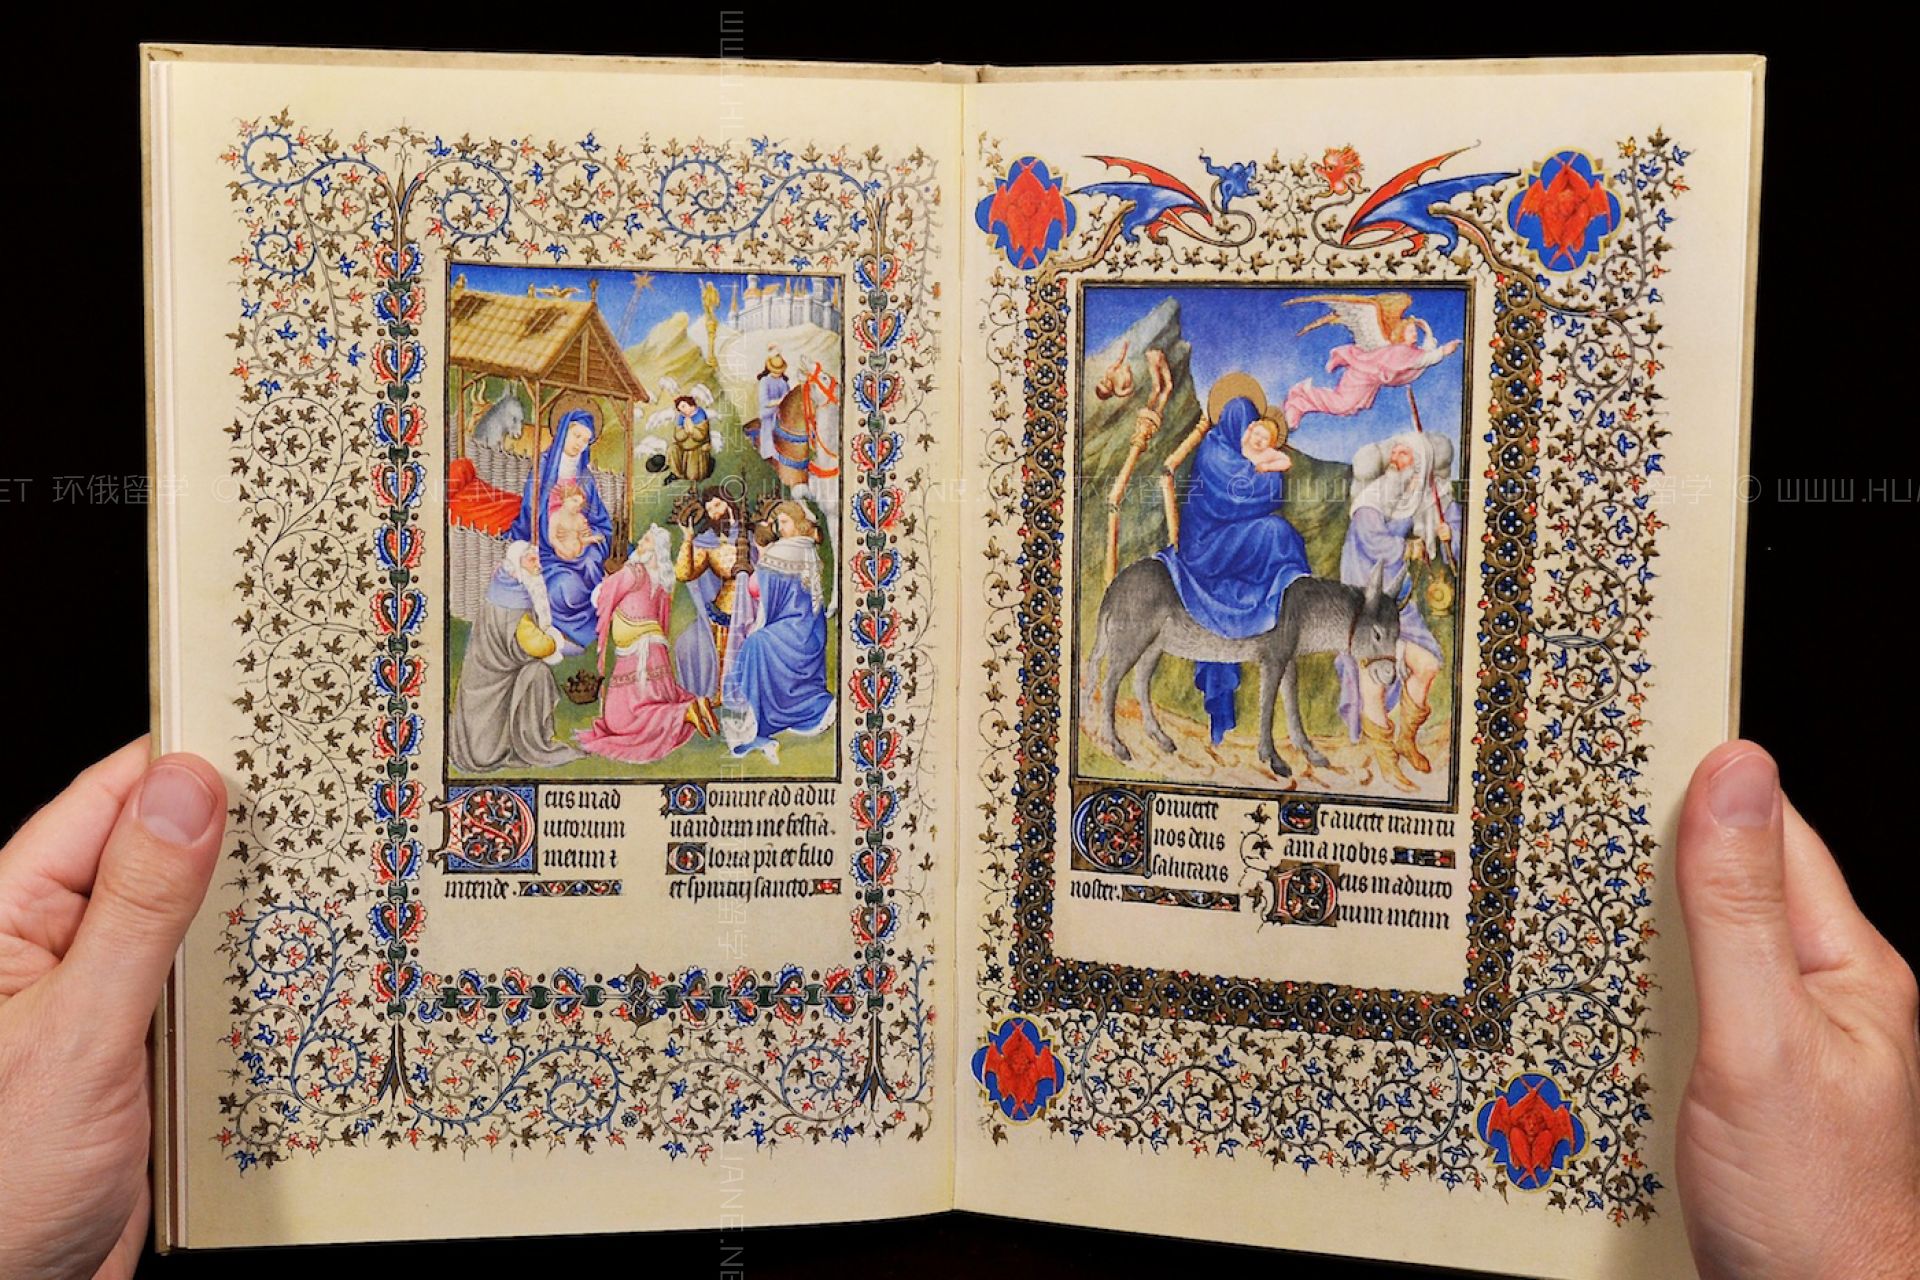 Deus in ad
iutorium
meum ⁊
intende.
Domine ad adiu
uandum me festia.
Gloria pri et filio
et spiritui sancto.
Conuerte
nos deus
salutaris
noster.
Et auerte iram tu
am a nobis
Deus in adiuto
rium meum
环俄留学 © WWW.HUA